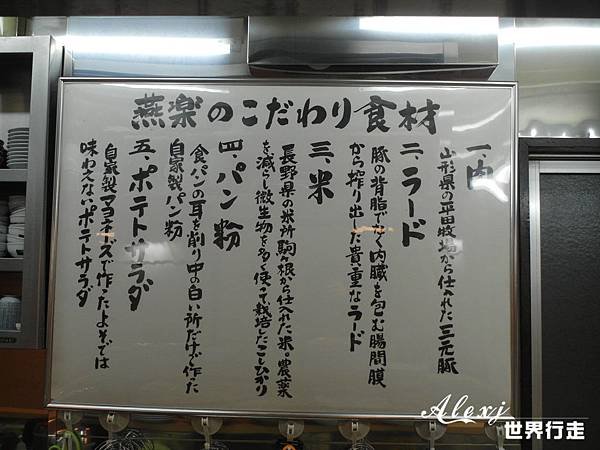 燕楽のこだわり食材
一、肉
山形県の平田牧場から仕入れた三元豚
二、ラード
豚の背脂でなく内臓を包む腸間膜
から搾り出した貴重なラード
三、米
長野県の米所駒ヶ根から仕入れた米。農薬
を減らし微生物を多く使って栽培したこしひかり
四、パン粉
食パンの耳を削り中の白い所だけで作った
自家製パン粉
五、ポテトサラダ
自家製マヨネーズで作ったよそでは
味わえないポテトサラダ
Alexj
世界行走